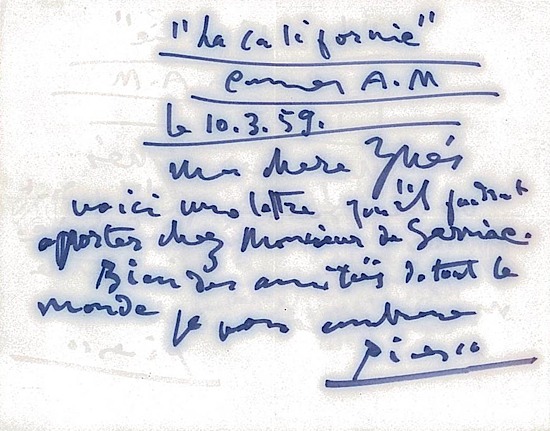 "La Californie"
Cannes A.M
le 10.3.59.
ma chere Ynès
voici une lettre qu'il faudrait
apporter chez Monsieur de Sernac.
Bien des amitiés de tout le
monde je vous embrasse
Picasso